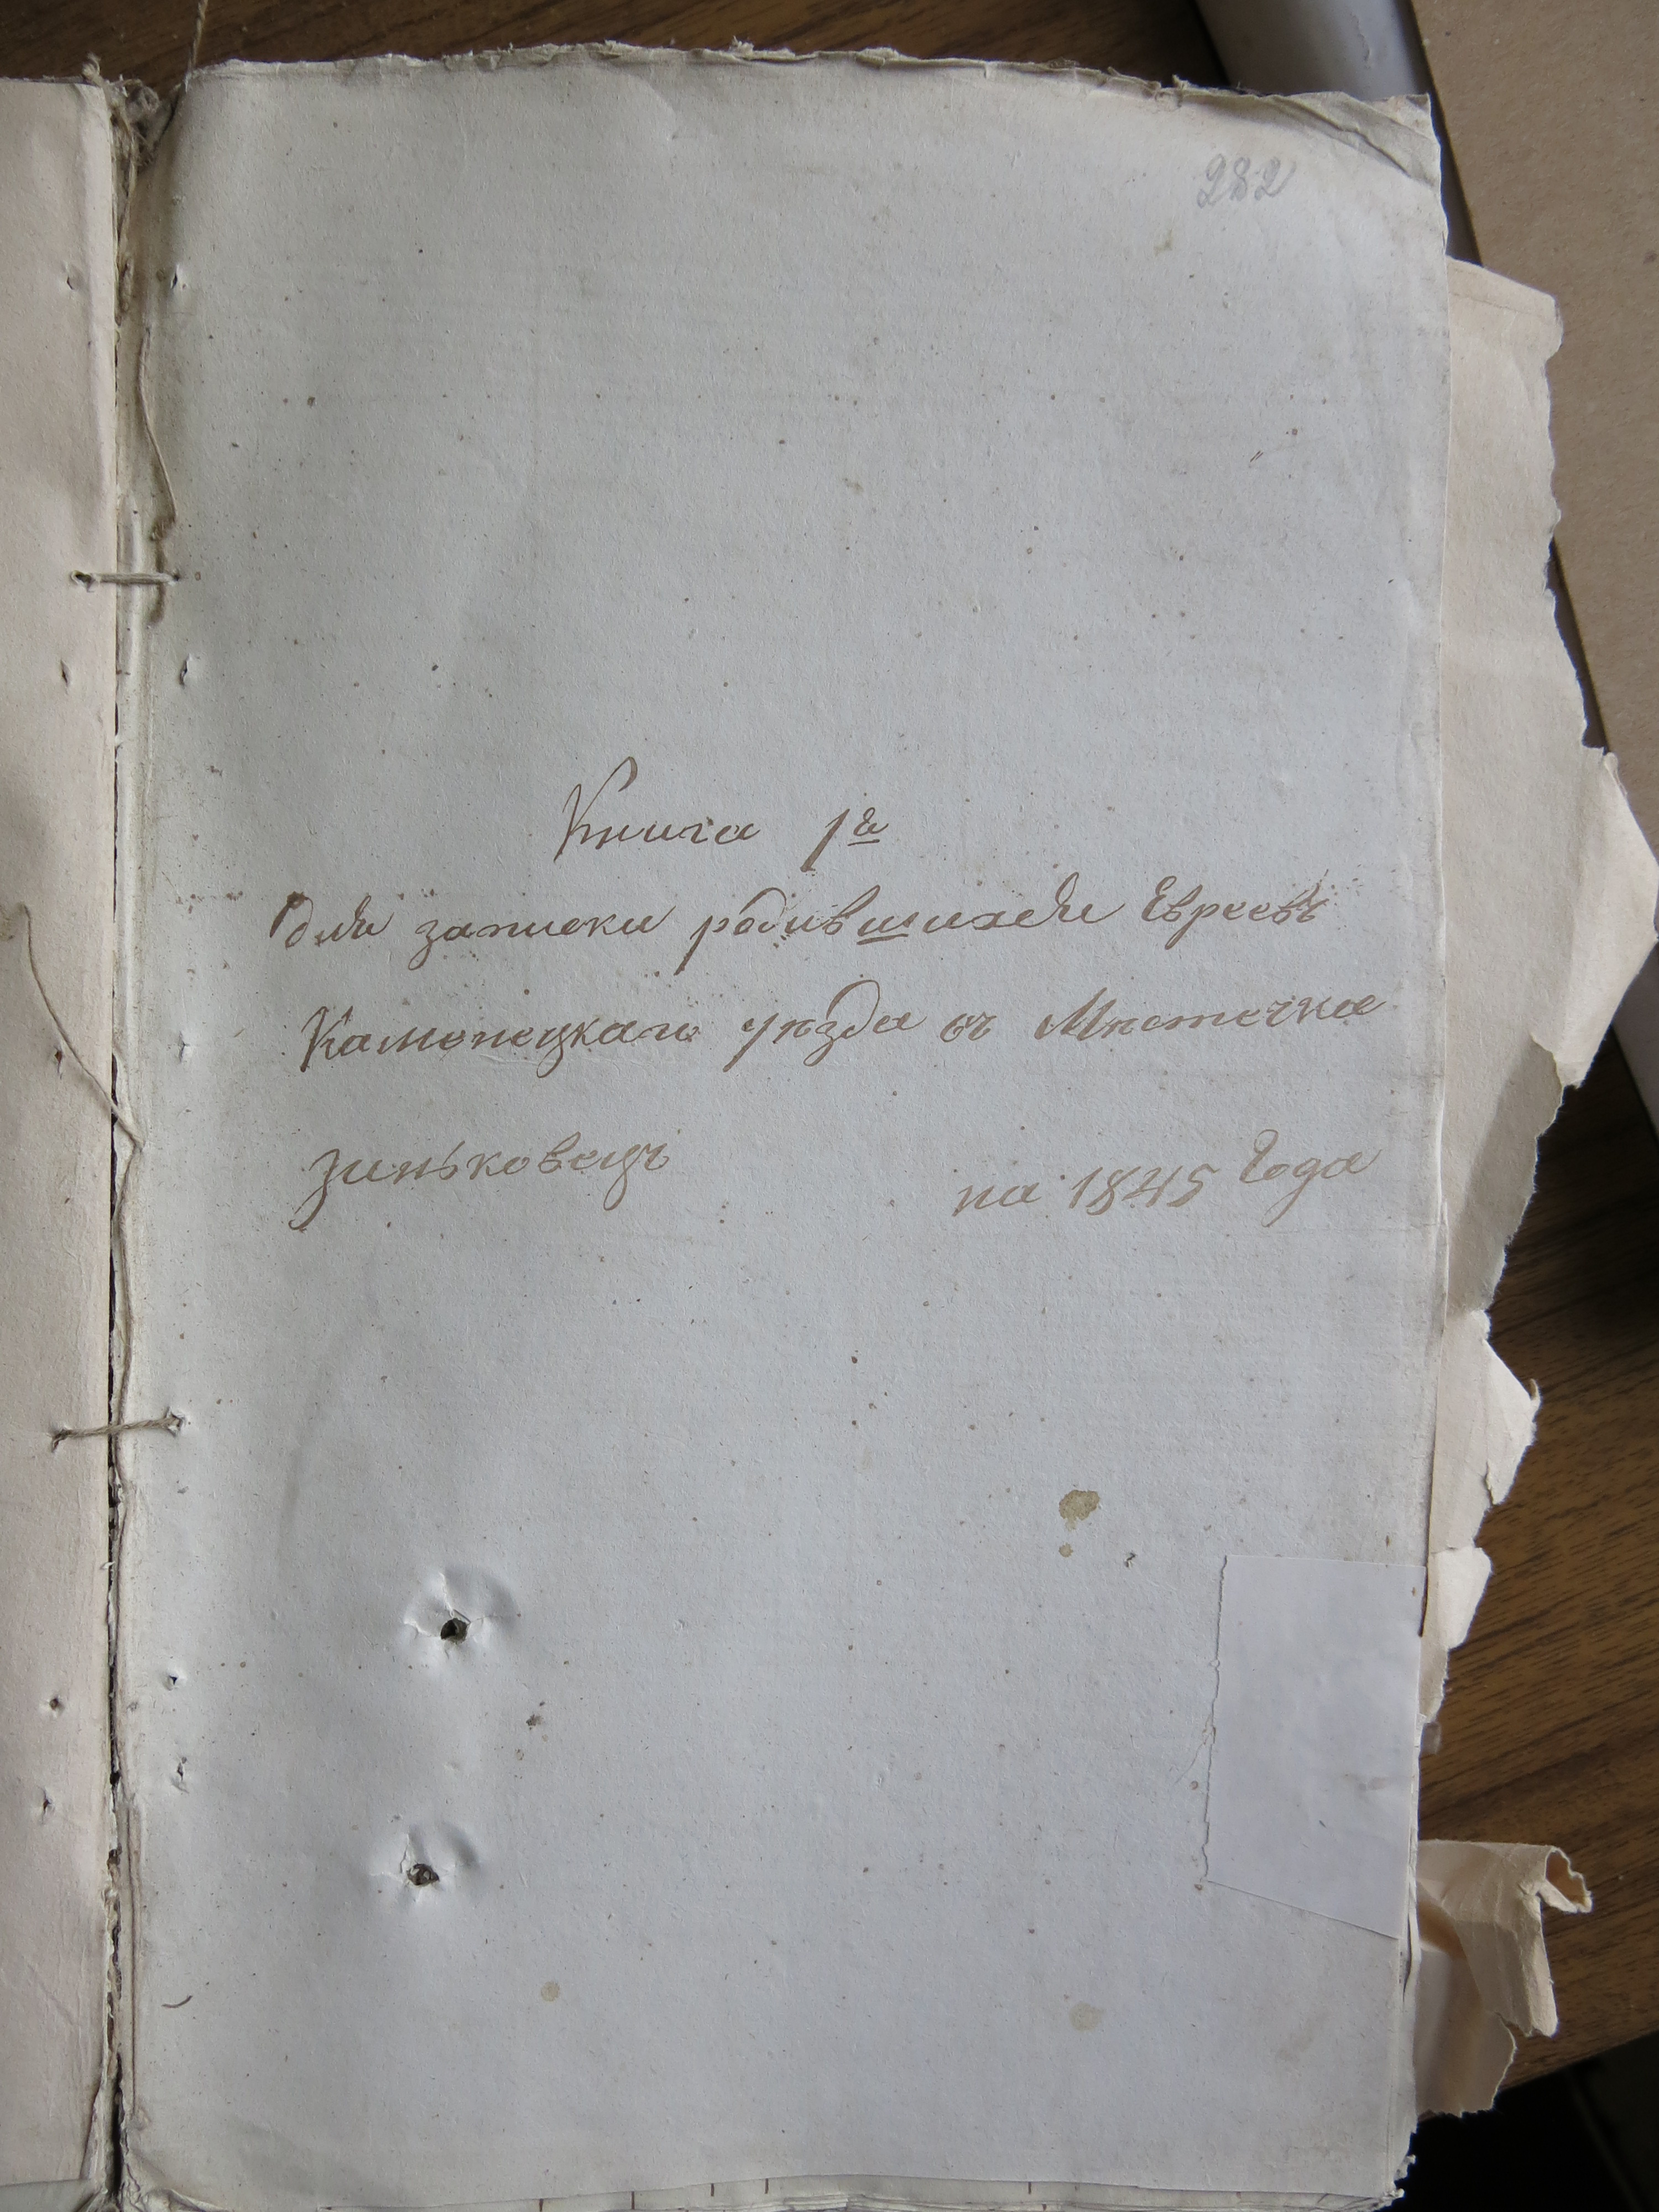 282
Книга 1ᵃ
для записки родившихся Евреевъ
Каменецкаго уезда въ Местечка
зиньковецъ на 1845 Года